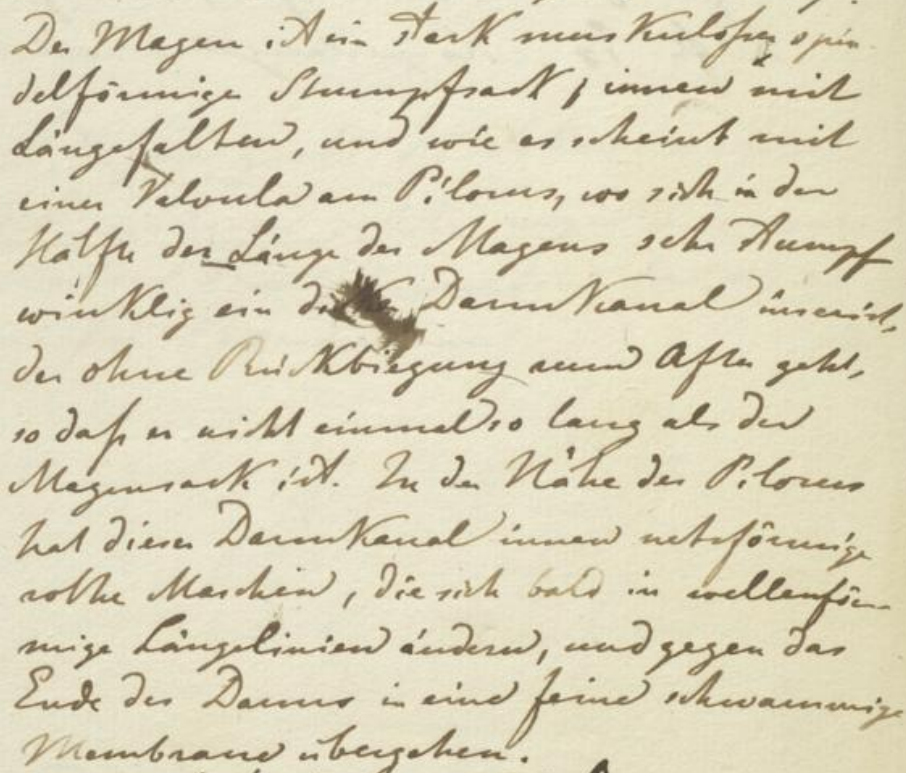 Der Magen ist ein stark muskuloser spin-
delförmiger Stumpfsack, innen mit
Längefalten, und wie es scheint mit
einer Valvula am Pilorus, wo sich in der
Hälfte der Länge des Magens sehr stumpf
winklig ein Darmkanal inserirt,
der ohne Rückbiegung zum After geht,
so daß er nicht einmal so lang als der
Magensack ist. In der Nähe des Pilorus
hat dieser Darmkanal innen netzförmige
rothe Maschen, die sich bald in wellenför-
mige Längelinien ändern, und gegen das
Ende des Darms in eine feine schwammige
Membrane übergehen.